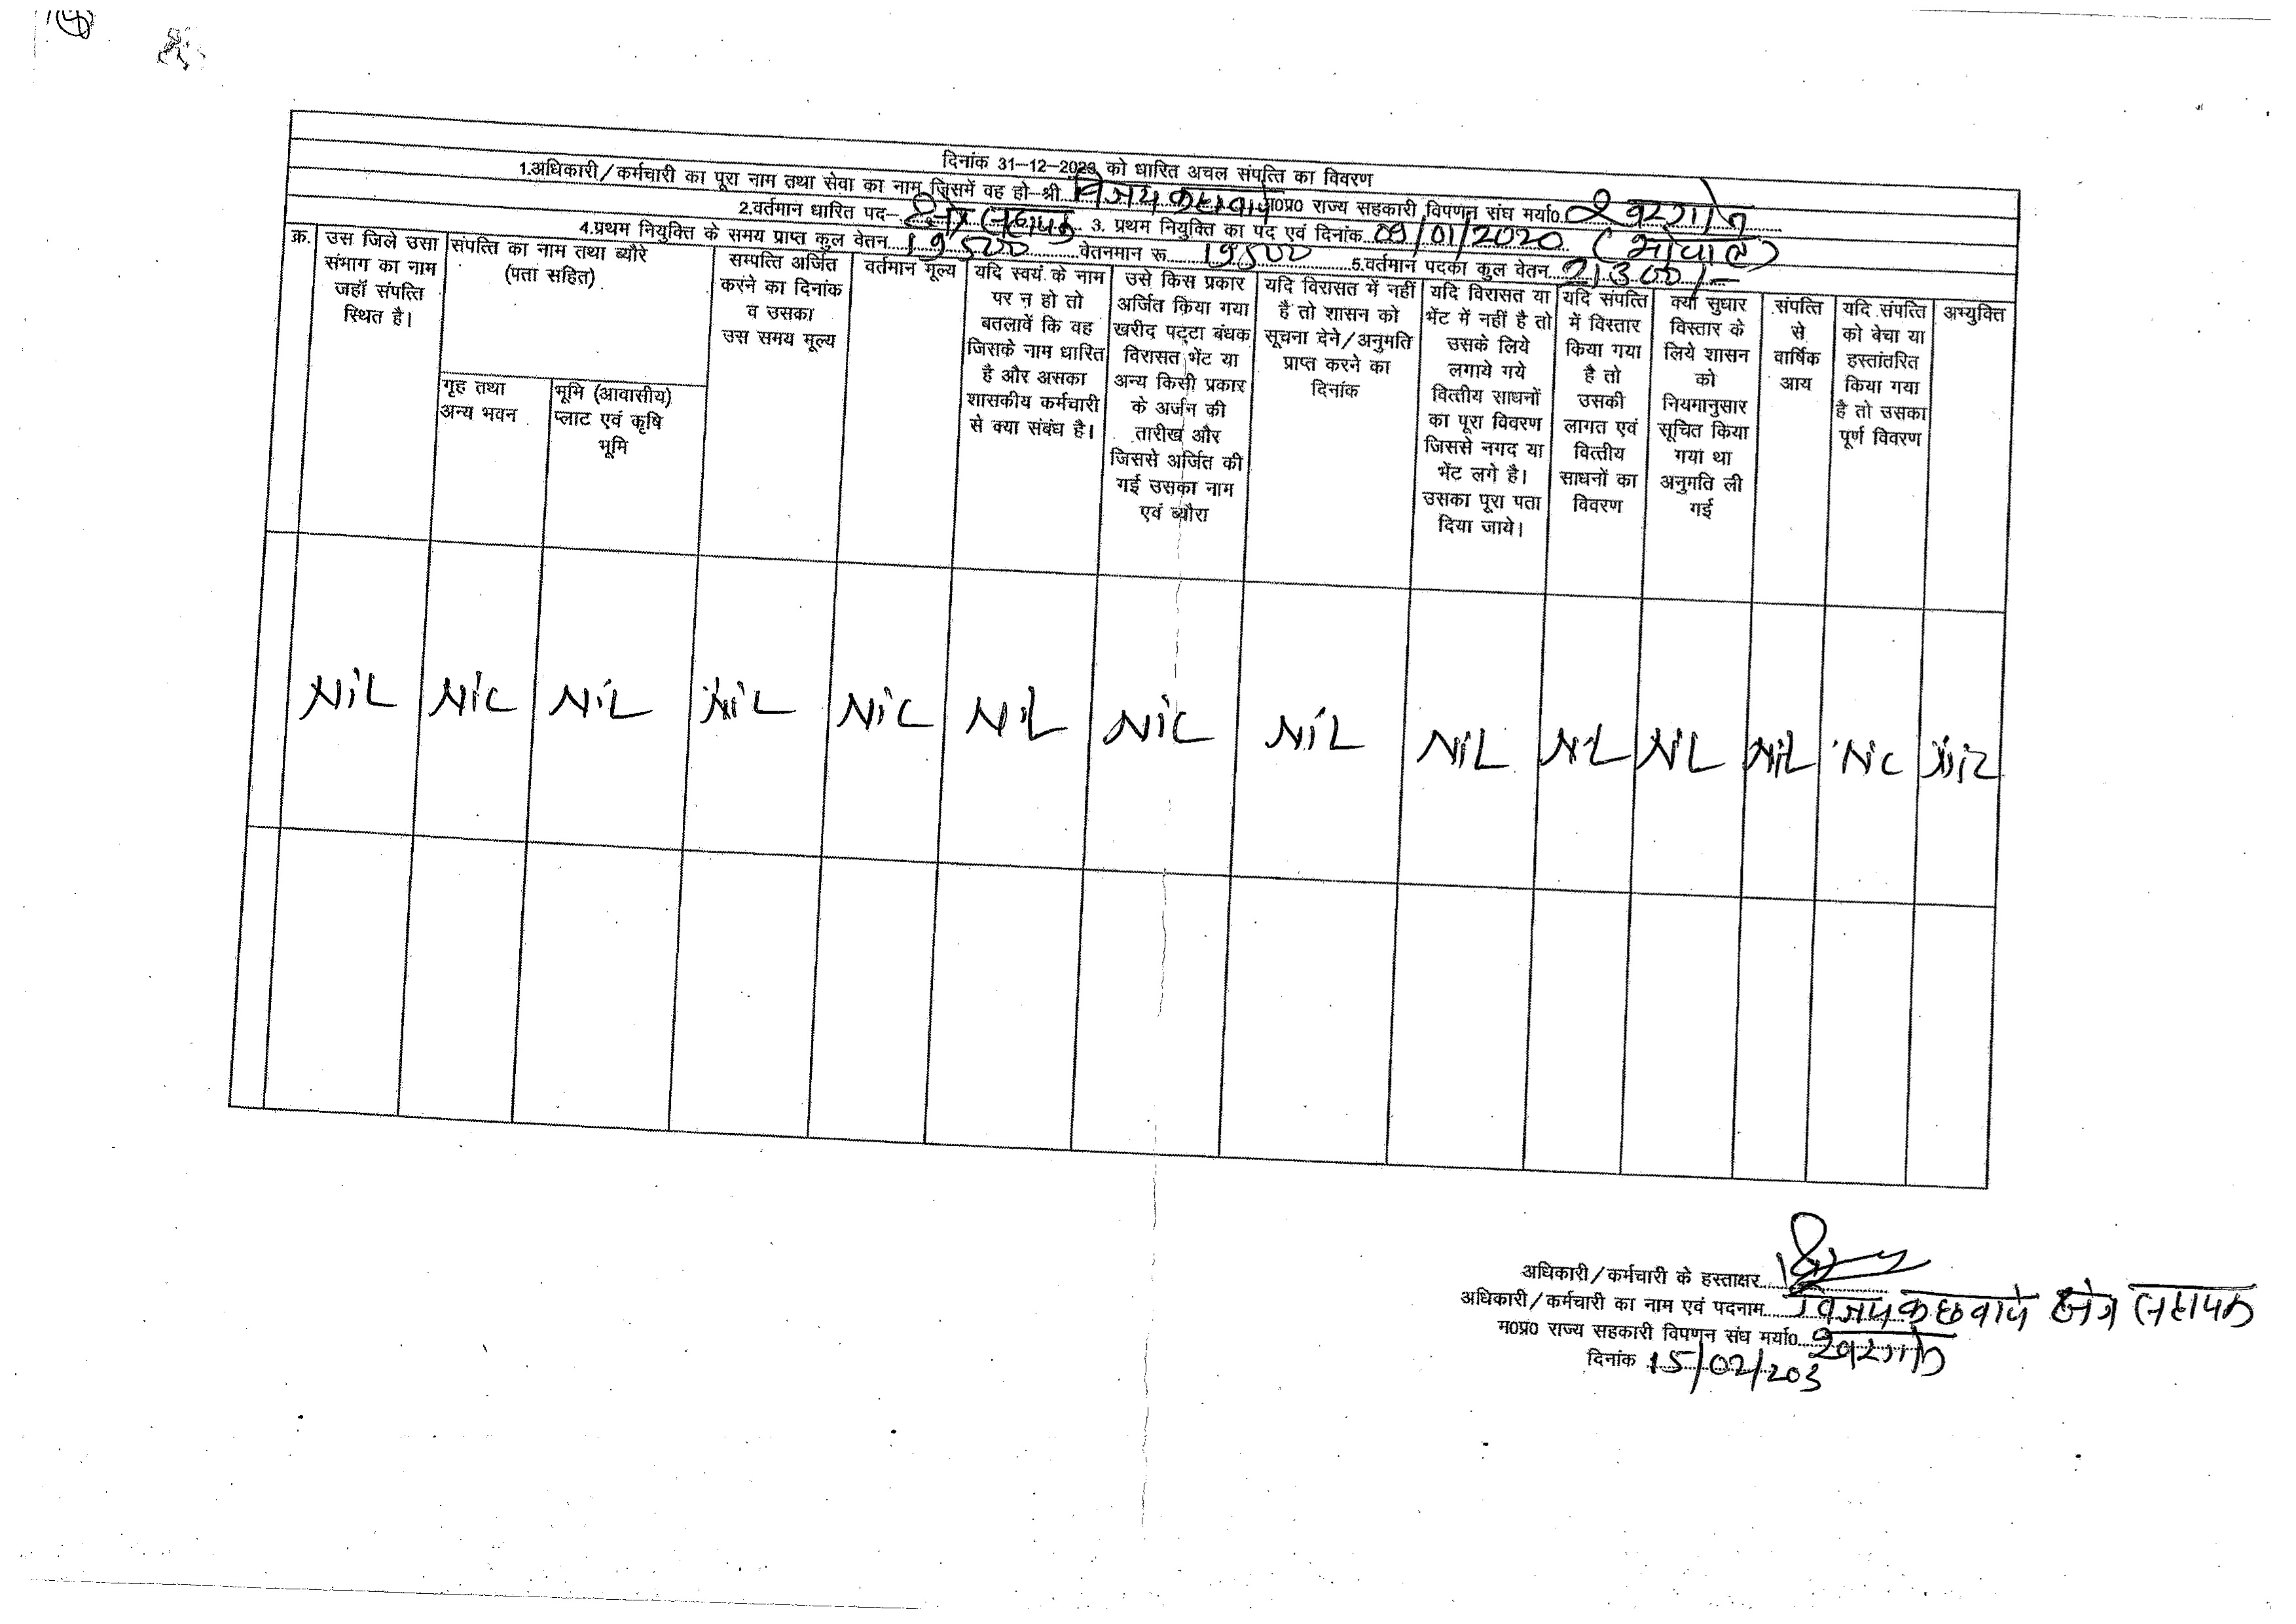 दिनांक 31-12-2023 को धारित अचल संपत्ति का विवरण
1.अधिकारी/कर्मचारी का पूरा नाम तथा सेवा का नाम जिसमें वह हो-श्री विजय कछवाये म0प्र0 राज्य सहकारी विपणन संघ मर्या0 खरगोन
2.वर्तमान धारित पद- क्षेत्र सहायक 3. प्रथम नियुक्ति का पद एवं दिनांक 09/01/2020 (भोपाल)
4.प्रथम नियुक्ति के समय प्राप्त कुल वेतन 19500 वेतनमान रू 19500 5.वर्तमान पदका कुल वेतन 21300/-
क्र.
उस जिले उसा
संभाग का नाम
जहाँ संपत्ति
स्थित है।
संपत्ति का नाम तथा ब्यौरे
(पता सहित)
गृह तथा
अन्य भवन
भूमि (आवासीय)
प्लाट एवं कृषि
भूमि
सम्पत्ति अर्जित
करने का दिनांक
व उसका
उस समय मूल्य
वर्तमान मूल्य
यदि स्वयं के नाम
पर न हो तो
बतलावें कि वह
जिसके नाम धारित
है और असका
शासकीय कर्मचारी
से क्या संबंध है।
उसे किस प्रकार
अर्जित किया गया
खरीद पट्टा बंधक
विरासत भेंट या
अन्य किसी प्रकार
के अर्जन की
तारीख और
जिससे अर्जित की
गई उसका नाम
एवं ब्यौरा
यदि विरासत में नहीं
है तो शासन को
सूचना देने/अनुमति
प्राप्त करने का
दिनांक
यदि विरासत या
भेंट में नहीं है तो
उसके लिये
लगाये गये
वित्तीय साधनों
का पूरा विवरण
जिससे नगद या
भेंट लगे है।
उसका पूरा पता
दिया जाये।
यदि संपत्ति
में विस्तार
किया गया
है तो
उसकी
लागत एवं
वित्तीय
साधनों का
विवरण
क्या सुधार
विस्तार के
लिये शासन
को
नियमानुसार
सूचित किया
गया था
अनुमति ली
गई
संपत्ति
से
वार्षिक
आय
यदि संपत्ति
को बेचा या
हस्तांतरित
किया गया
है तो उसका
पूर्ण विवरण
अभ्युक्ति
NiL NiL NiL NiL NiL NiL NiL NiL NiL NiL NiL NiL NiL NiL
अधिकारी/कर्मचारी के हस्ताक्षर
अधिकारी/कर्मचारी का नाम एवं पदनाम विजय कछवाये क्षेत्र सहायक
म0प्र0 राज्य सहकारी विपणन संघ मर्या0 खरगोन
दिनांक 15/02/203